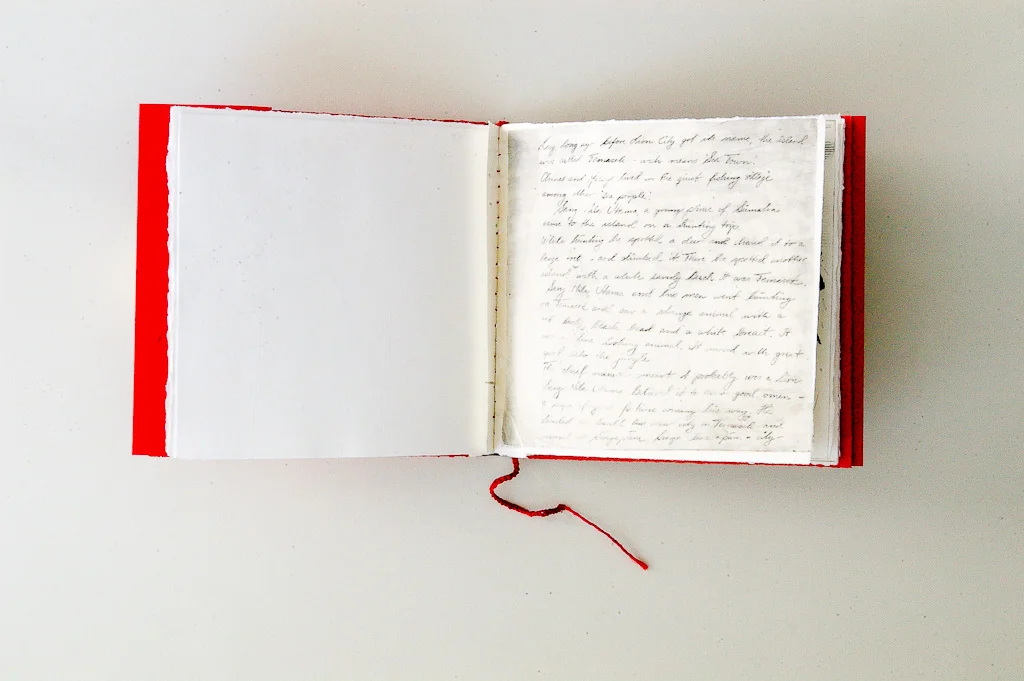 long ago before Lion City got its name, the island
was called Temasek - wich means 'Sea Town'.
lived in the quiet fishing village
among other 'sea people'.
Sang Nila Utama, a young prince of Sumatra
came to this island on a hunting trip.
While hunting he spotted a deer and chased it to a
large rock - and climbed it. There he spotted another
island with a white sandy beach. It was Temasek.
Sang Nila Utama and his men went hunting
on Temasek and saw a strange animal with a
red body, black head and a white breast. It
was a fine looking animal. It moved with great
into the jungle
The chief minister it probably was a Lion
Sang Nila Utama believed it to be a good omen -
a sign of good fortune coming his way. He
decided to built his new city in Temasek and
named it Singapura. Singa - lion + pura - city